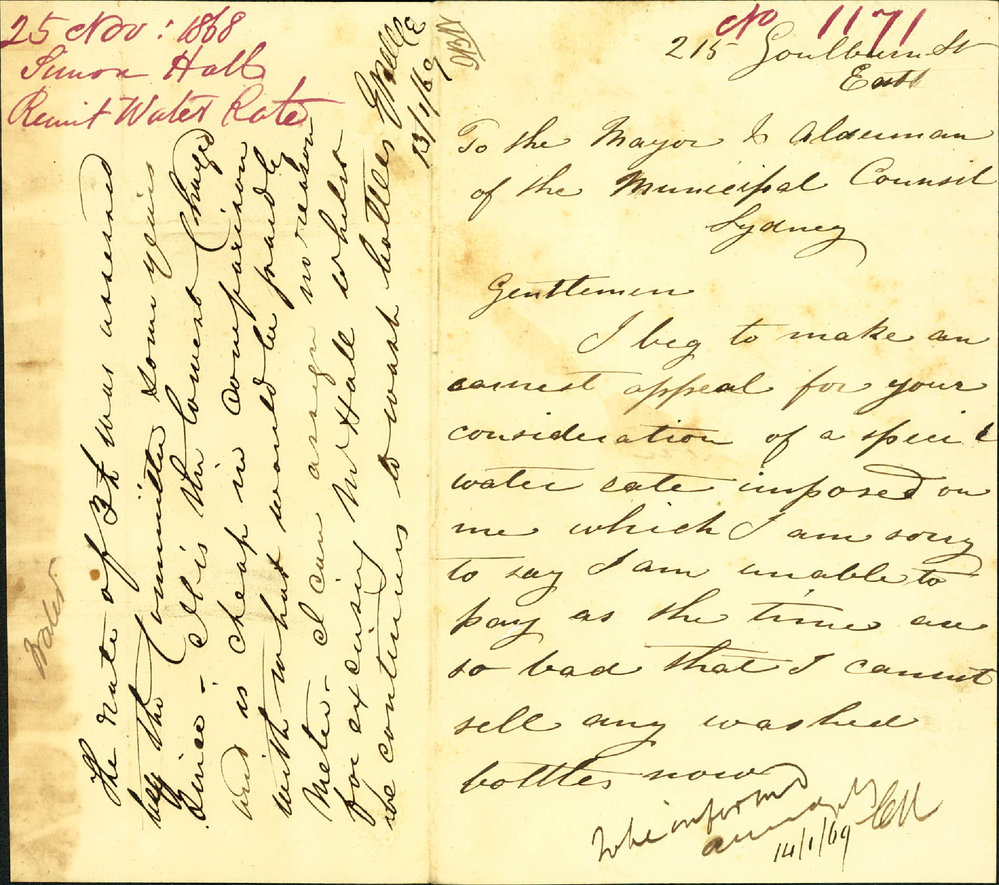 25 Nov: 1868
Simon Hall
Remit Water Rate
No 1171
215 Goulburn St
East
To the Mayor & Alderman
of the Municipal Counsel
Sydney
Gentlemen
I beg to make an
earnest appeal for your
consideration of a special
water rate imposed on
me which I am sorry
to say I am unable to
pay as the time are
so bad that I cannot
sell any washed
bottles now
To be informed
accordingly
14/1/69
The rate of 3£ was assessed
by the Committee some years
since - It is the lowest Charged
and is cheap in comparison
with what would be paid by
Meter - I can assign no reason
for excusing Mr Hall whilst
he continues to wash bottles
13/1/69
Water